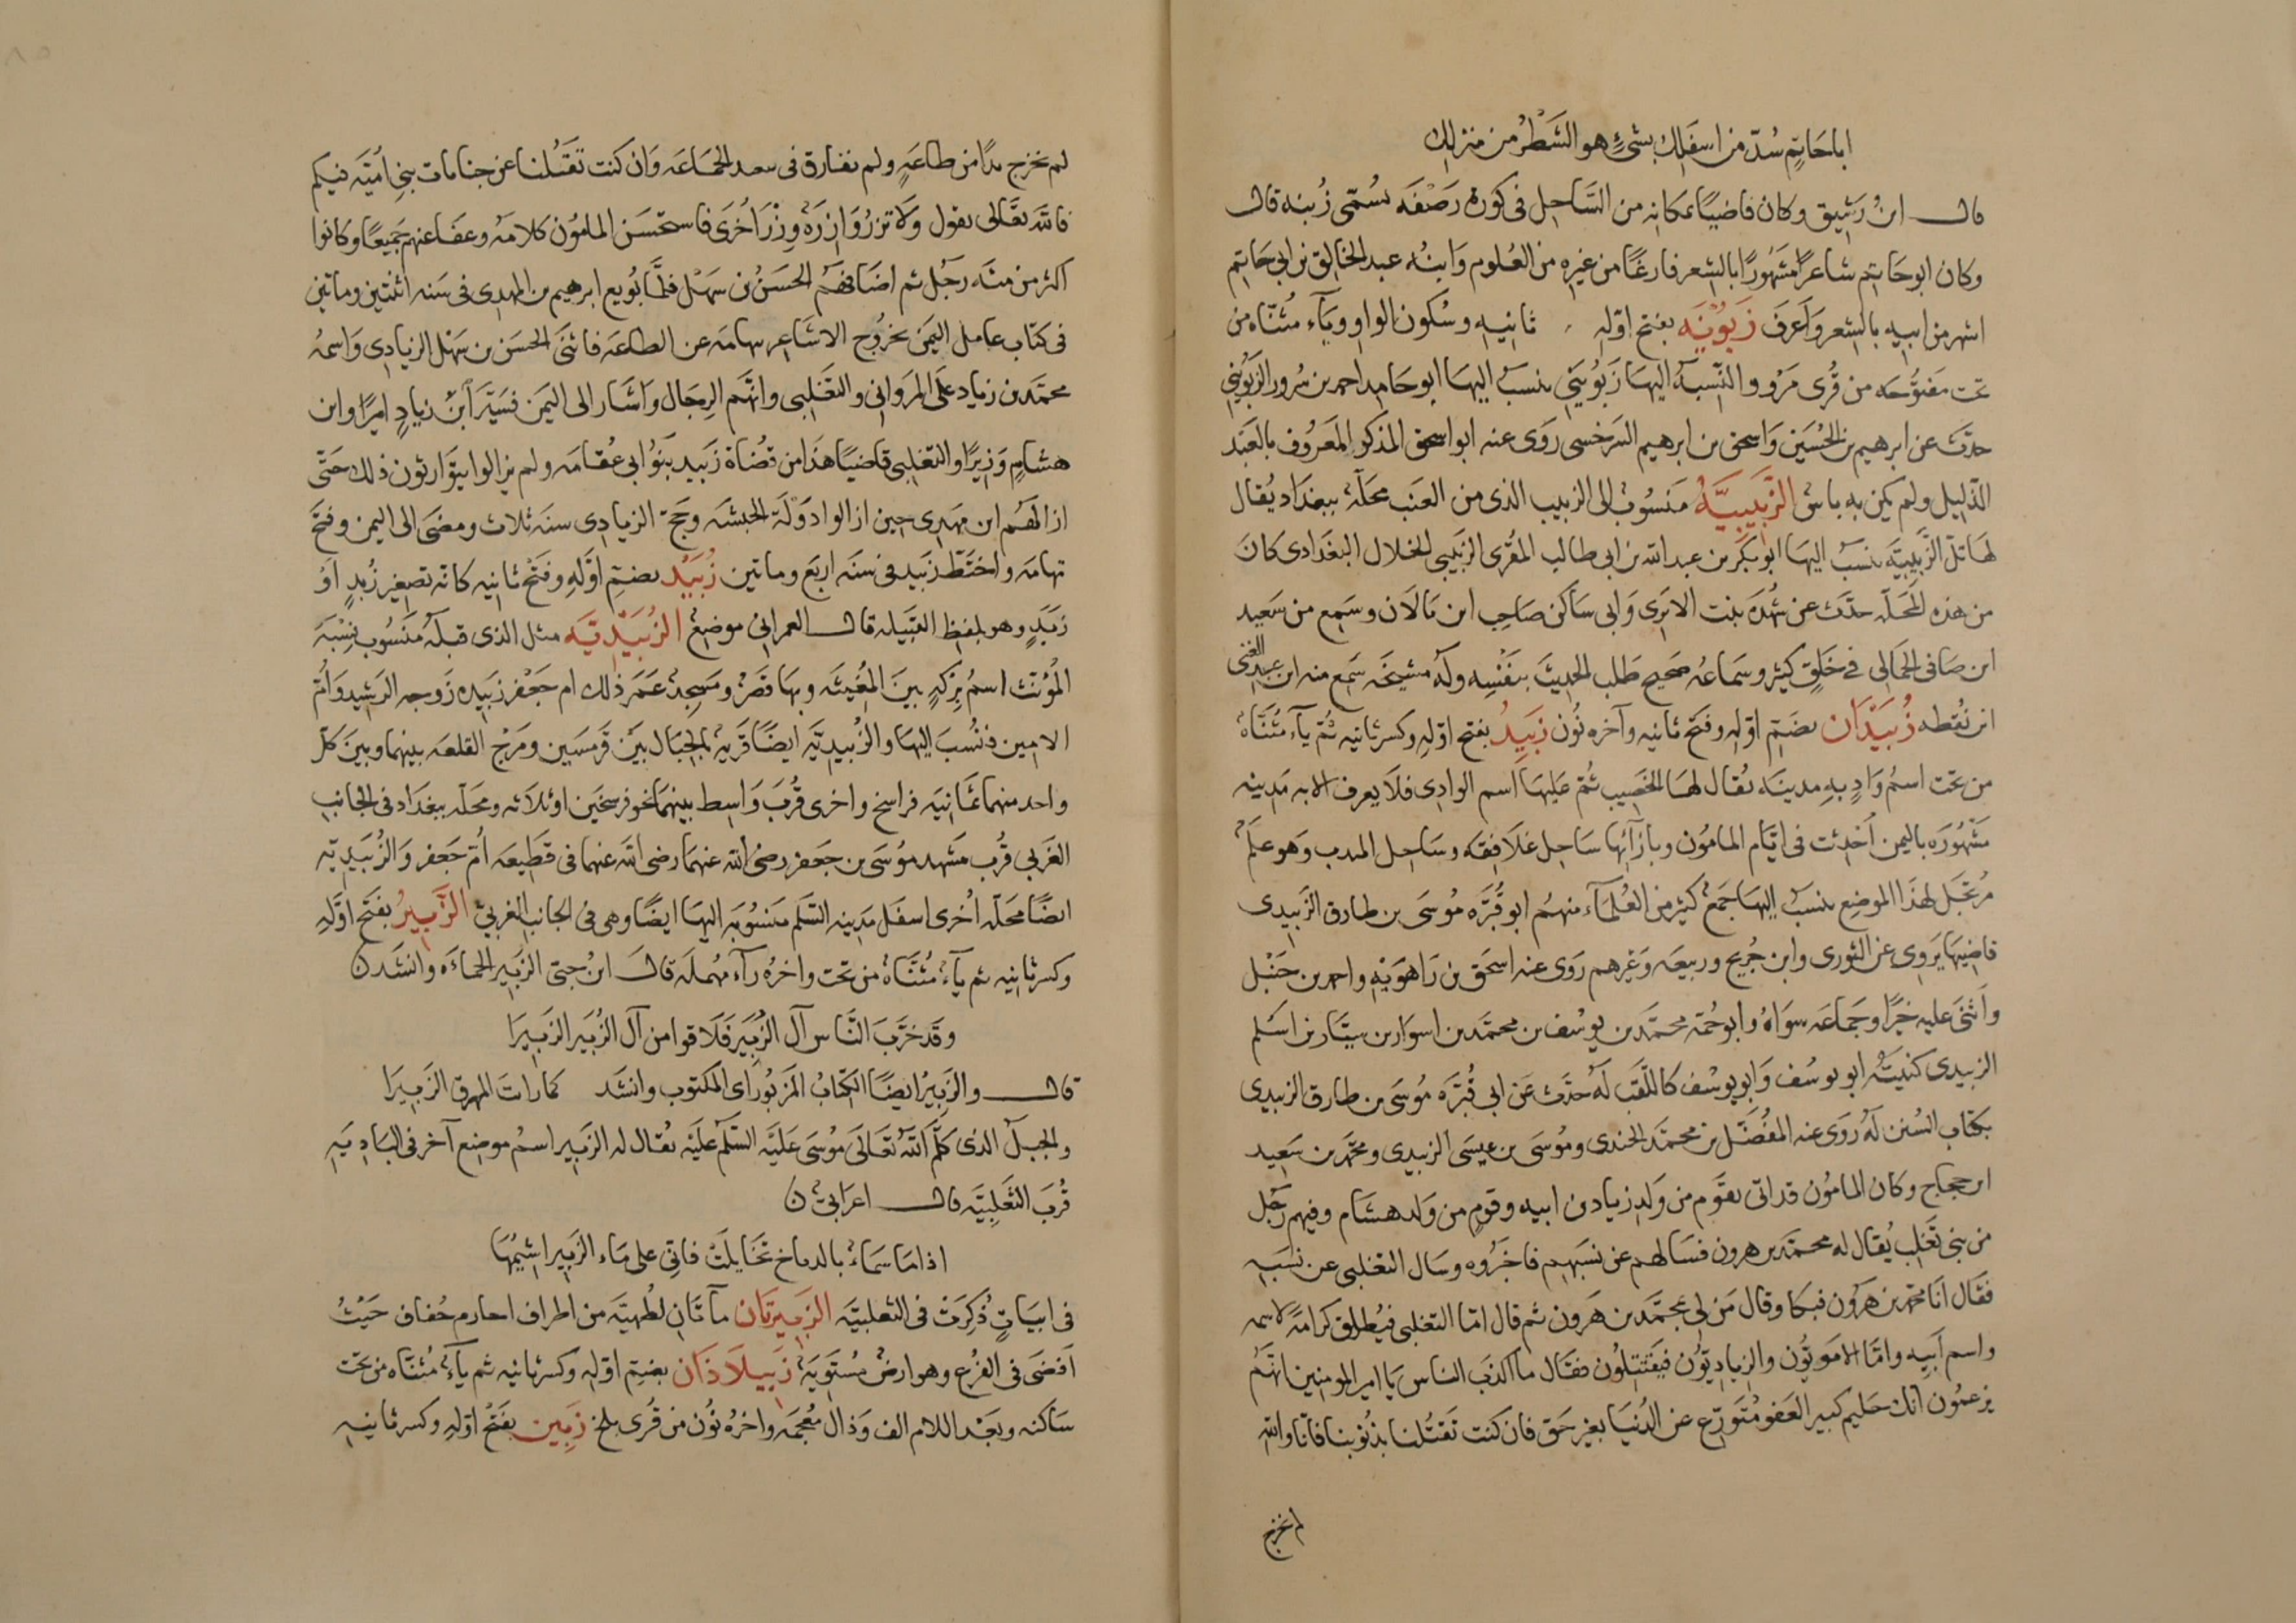 اباحَاتِم سُدّ من اسفَلِك بشئٍ هو الشَطْرُ من منزلِك
قال ابنُ رَشِيق وكان قاضيًا بمكانه من السَّاحِل فى كورة رَصْفَه تسُمّى زُبنه قال
وكان ابو حَاتم شاعرًا مَشهُورًا بالشعر فارغًا من غيره من العُلوم وَابنُه عبد الخالق بن ابى حَاتم
اشهر من ابيه بالشعر وَاَعرَف زَبُوْيَه بفتح اوّله ثانيه وسُكون الواو ويآء مثُنّاه من
تحت مَفتوُحَه من قُرى مَرْو والنّسِبَةُ اليهَا زَبُويَىّ ينسَبُ اليهَا ابو حَامد احمد بن سُرور الزَبُويىّ
حدّث عن ابرهيم بن الحُسَين وَاسحق بن ابرهيم السَرخسى رَوى عنه ابو اسحق المذكور المَعرُوف بالعَبد
الذّليل ولم يكن به باس الزَّبيبيَّةُ مَنسُوبُ الى الزبيب الذى من العنَب محَلّة ببغدَاد يُقال
لهَا تلّ الزَّبيبيَّه ينسَبُ اليهَا ابو بَكر بن عبد الله بن ابى طالب المقُرى الزَبيبى الخلال البغَدَادى كانَ
من هذه المحَلّه حدّث عن شُهدَه بنت الابَرى وَابى سَاكن صَاحِب ابن بَالاَن وسَمِع من سَعيد
ابن صَافى الجَمالى فى خَلِق كثيرٍ وسَماعُه صَحيح طَلب الحديثَ بنَفْسِه وله مشيخَه سَمِع منه ابن عبد الغنى
ابن نُقطه زُبَيْدَان بضَمّ اوّله وفَتح ثانيه وآخره نُون زَبِيدُ بفتح اوّلِهِ وكسر ثانيه ثُم يآء مُثنَّاهُ
من تحت اسمُ وَادٍ بِهِ مدينَه يُقال لهَا الحُصَيب ثُم عَليهَا اسم الوادى فلاَ يعرف الا به مَدينه
مَشْهُورَه باليمن اُحْدِثت فى ايّام المامُون وبازآئهَا سَاحِل غلاَفِقَه وسَاحِل المندب وَهو علَمٌ
مُرتَجَل لهذَا الموَضِع ينسَبُ اليهَا جَمعُ كثير من العُلمَآء منهُم ابو قُرَّه مُوسَى بن طارق الزَبيدى
قاضيها يَروِى عن الثورى وابن جُريج وربيعَه وَغيرهم رَوى عنه اسحَق بن رَاهوَيْهِ واحمد بن حَنبَل
واَثنى عليه خَيرًا وجَماعَه سوَاهُ وابو حُمَة محَمّد بن يوسُف بن محمّد بن اسوَار بن سَيّار بن اسَلم
الزبيدى كنيَتُه ابو يوسُف وَابو يوسُف كاللّقَب لَهُ حدّث عَن ابى قُرَّه مُوسَى بن طارق الزبيدى
بكتَاب السُنن لَهُ رَوى عنه المفُضَّل بن محمّد الجندى ومُوسَى بن عيسَى الزبيدى ومحَمّد بن سَعيد
ابن حجاج وكان المامُون قد اتى بقَوم من وَلدِ زياد بن ابيه وقومٍ من وَلد هشَام وفيهم رَجُل
من بنى تَغلب يُقال له محمّد بن هرون فسَالهم عن نسَبَهم فاخبَرُوه وسَال التغلبى عن نسَبِهِ
فقَال اَنَا محمّد بن هَرُون فبَكا وقال مَن لى بمحمّد بن هَرون ثم قال امّا التغلبى فيُطلَق كرَامةً لاسمه
واسم اَبيِه وامّا الاَموَيّون والزياديّوُن فيَقتَتِلوُن فقَال مآ اكذبَ الناس يَا اميرَ المومنين انهَّم
يزعمُون انك حَليم كبير العَفو مُتَورّع عن الدُنيَا بغير حَقّ فان كنت تَقتُلنا بذنُوبنا فانّا والله
لم نخرج
لم نخرج يدًا من طاعَهٍ ولم نفارق فى سعد الجماعَه وَان كنت تقتُلنا عن جنايات بنى اُميَّه فيكم
فاللّه تعَالى يقول وَلاَ تزرُ وَازِرَةٌ وِزْرَ اُخرَى فاستَحسَن المامُون كلاَمَهُ وعفَا عنهم جَميعًا وكانوا
اكثر من مئَه رَجُل ثم اضَافهَم الحسَنُ بن سهَل فلمَّا بُويع ابرهيم بن المهدى فى سَنه اثنتين وماتين
فى كتاب عامل اليَمن بخرُوج الاشاعر بتهامَه عن الطاعَه فاثنَى الحسَن بن سَهْل الزيادى وَاسمهُ
محَمّد بن زياد علَى المَروانى والتغَلبى وانهَّم الرِجَال وَاشَار الى اليَمن فسَيَّر ابنُ زيادٍ اميرًا وابن
هشامِ وَزيرًا والتغلبى قاضيًا هذَا من قضَاة زَبيد بَنوُ ابى عقُامَه ولم يزالوا يتوَارثون ذلك حَتىّ
ازالهَمُ ابن مهَدى حين ازالوا دَوْلَة الحبشَه وحَجّ الزيادِى سنَه ثلاث ومضَى الى اليمن وفتَح
تهامَه واختَطّ زَبيد فى سَنَه اربَع وماتين زُبَيْد بضمِّ اوّلهِ وفَتْح ثانيه كانّه تصغير زُبدٍ اوْ
زَبَدٍ وهو بلفظ القبَيله قال العمرانى موضِعُ الزُبَيْدِيّه مثل الذى قبلَه مَنسُوب نِسْبَه
المُؤنث اسمُ بِركهٍ بينَ المغُيثَه وبهَا قصَرُ ومَسجدُ عَمَرَ ذلك ام جَعفر زُبَيده زَوجه الرَشيد وَاُمّ
الامين فنُسُبَ اليهَا والزُبَيديَّه ايضًا قَريَه بالجبَال بَينَ قَرمَسين ومَرْج القلعَه بينهما وبينَ كلّ
واحد منهما ثمَانيَه فراسخ واخرى قُربَ وَاسِط بينهمَا نحو فرسخَين اوثلاثه ومحَلّه ببغدَاد فى الجانبِ
الغَربى قُرب مَشهد مُوسَى بن جَعفر رضىُ الله عنهمَا رضى الله عنهما فى قَطيعَه اُمّ جَعفر وَالزُبَيديّه
ايضًا محَلّه اُخرى اسفَل مَدينه السّلم مَنسُوبَه اليهَا ايضًا وهى فى الجانب الغَربى الزَّبِيرُ بفتح اَوّلهِ
وكسر ثانيه ثم يآءُ مُثنَّاهُ من تحت واخرُه رآء مُهملَه قالَ ابنُ جنى الزَبير الحمأَه وانشَدن
وقَد خرَّبَ النَّاس آلَ الزُبَير فَلاَقوا من آل الزُبَير الزَبيرَا
قال والزَبِيرُ ايضًا الكِتابُ المَزبُور اى المكتوب وانشَد كمَا رات المهرق الزَبيرَا
والجبلُ الذى كلَّم اللّهُ تعَالَى مُوسَى عَليَه السّلمُ عَلَيه يقُال له الزَبير اسمُ موضِع آخر فى البَادِيَهِ
قُربَ الثَعَلبيّه قال اعرَابىّ ن
اذا مَا سَمَاءُ بالدماخ تخَايلَتْ فانِّى على مَاء الزَبِير اشيمُهَا
فى ابيَاتٍ ذُكِرَتْ فى الثعلبيَّه الزَبِيرَتَان مآ تَانِ لطُهَيَّه من اطراف احارم خُفاف حَيْثُ
اَفضَى فى الفرُع وهو ارضُ مُستَويَهُ زَبِيلاَذَان بضم اوّله وكسر ثانيه ثم يآءُ مُثنّاه من تحت
سَاكنه وبعَد اللام الف وَذال معُجمَه واخرُه نُون من قُرى بلخ زَبِين بفَتحُ اوّلهِ وكسر ثانيه